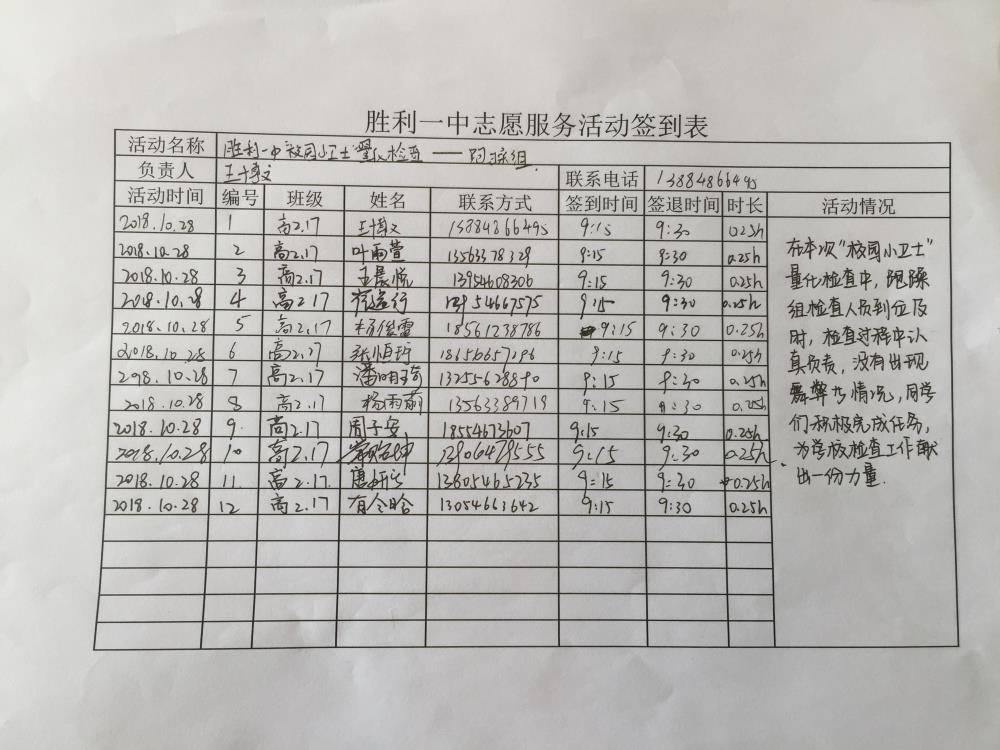 胜利一中志愿服务活动签到表
活动名称 胜利一中"校园小卫士"量化检查——跑操组
负责人 王博文 联系电话 13884866495
活动时间 编号 班级 姓名 联系方式 签到时间 签退时间 时长 活动情况
2018.10.28 1 高2.17 王博文 13884866495 9:15 9:30 0.25h
2018.10.28 2 高2.17 叶雨萱 13563378329 9:15 9:30 0.25h
2018.10.28 3 高2.17 王晨悦 13954608306 9:15 9:30 0.25h
2018.10.28 4 高2.17 13954667575 9:15 9:30 0.25h
2018.10.28 5 高2.17 18561238786 9:15 9:30 0.25h
2018.10.28 6 高2.17 张恒 9:15 9:30 0.25h
2018.10.28 7 高2.17 潘明琦 13255628890 9:15 9:30 0.25h
2018.10.28 8 高2.17 杨雨萌 13563389719 9:15 9:30 0.25h
2018.10.28 9 高2.17 周子安 18554673607 9:15 9:30 0.25h
2018.10.28 10 高2.17 13906479555 9:15 9:30 0.25h
2018.10.28 11 高2.17 13805465235 9:15 9:30 0.25h
2018.10.28 12 高2.17 有令晗 13054663642 9:15 9:30 0.25h
在本次"校园小卫士"
量化检查中，跑操
组检查人员到位及
时，检查过程中认
真负责，没有出现
舞弊情况，同学
们积极完成任务，
为学校检查工作献
出一份力量.